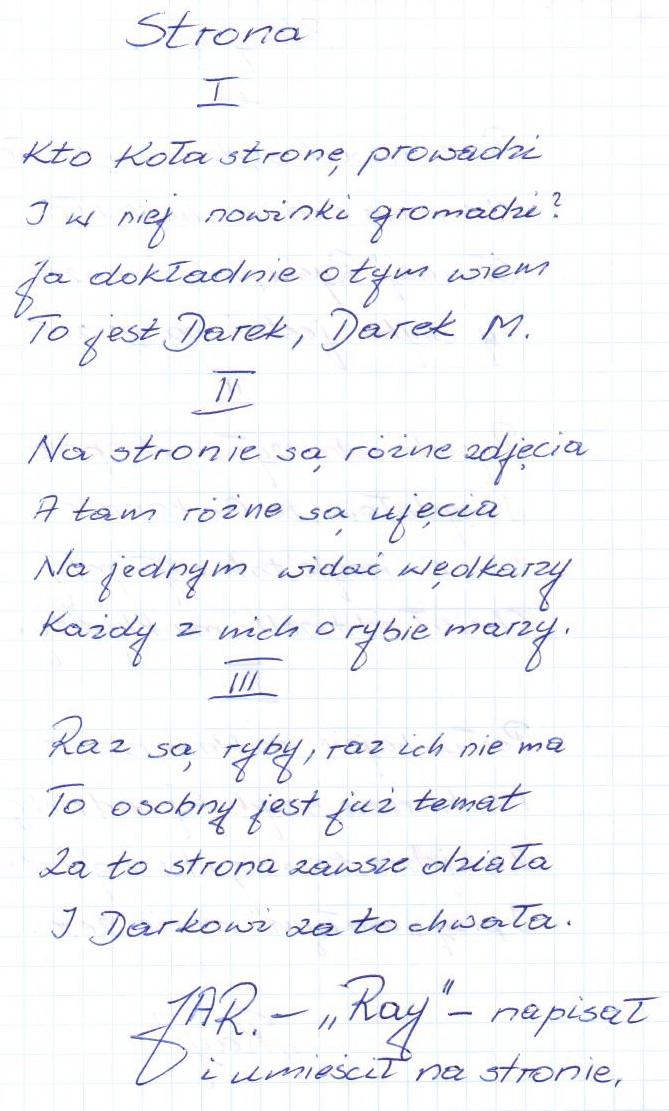 Strona
I
Kto Koła stronę prowadzi
I w niej nowinki gromadzi?
Ja dokładnie o tym wiem
To jest Darek, Darek M.
II
Na stronie są różne zdjęcia
A tam różne są ujęcia
Na jednym widać wędkarzy
Każdy z nich o rybie marzy.
III
Raz są ryby, raz ich nie ma
To osobny jest już temat
Za to strona zawsze działa
I Darkowi za to chwała.
JAR. – „Ray” – napisał
i umieścił na stronie.